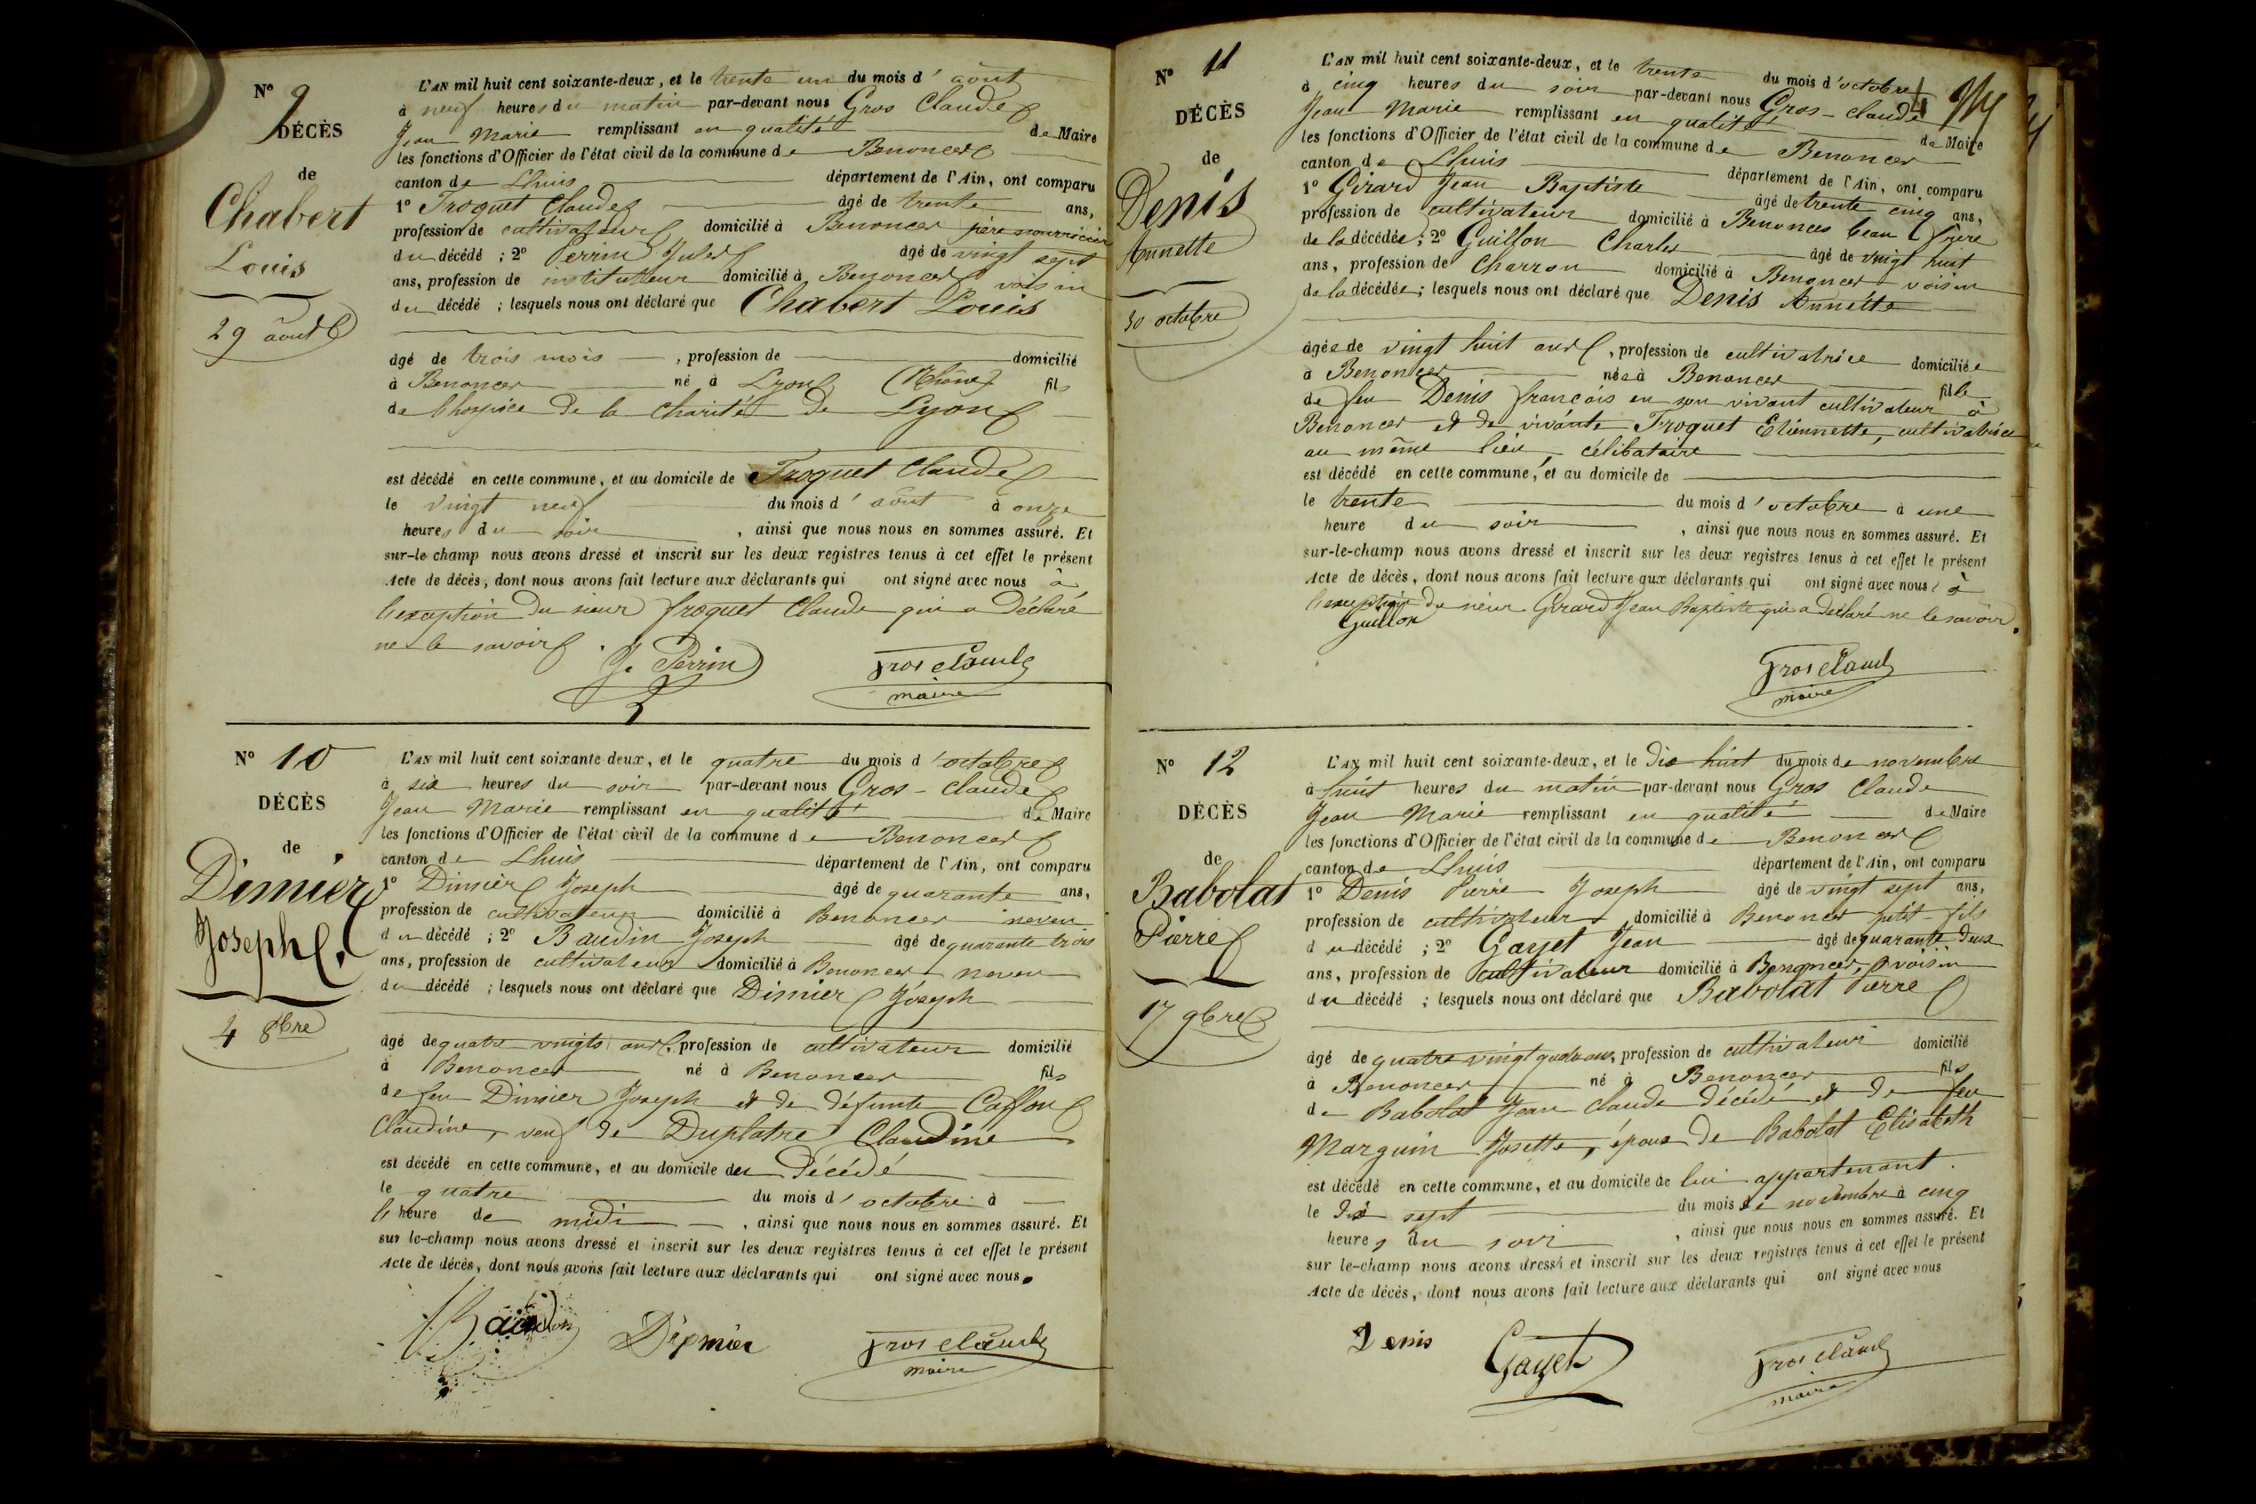 N° 9
DÉCÈS
de
Chabert
Louis
29 août
L'AN mil huit cent soixante-deux, et le trente un du mois d'août
à neuf heures du matin par-devant nous Gros Claude
Jean Marie remplissant en qualité de Maire
les fonctions d'Officier de l'état civil de la commune de Benonces
canton de Lhuis département de l'Ain, ont comparu
1° Troquet Claude âgé de trente ans,
profession de cultivateur domicilié à Benonces père nourricier
du décédé ; 2° Perrin Jules âgé de vingt sept
ans, profession de instituteur domicilié à Benonces voisin
du décédé ; lesquels nous ont déclaré que Chabert Louis
âgé de trois mois , profession de domicilié
à Benonces né à Lyon (Rhône) fils
de l'hospice de la charité de Lyon
est décédé en cette commune, et au domicile de Troquet Claude
le vingt neuf du mois d'août à onze
heures du soir , ainsi que nous nous en sommes assuré. Et
sur-le champ nous avons dressé et inscrit sur les deux registres tenus à cet effet le présent
Acte de décès, dont nous avons fait lecture aux déclarants qui ont signé avec nous à
l'exception du sieur froquet Claude qui a déclaré
ne le savoir.
J. Perrin Gros Claude
maire
N° 10
DÉCÈS
de
Dimier
Joseph.
4 8bre
L'AN mil huit cent soixante-deux, et le quatre du mois d'octobre
à six heures du soir par-devant nous Gros-Claude
Jean Marie remplissant en qualité de Maire
les fonctions d'Officier de l'état civil de la commune de Benonces
canton de Lhuis département de l'Ain, ont comparu
1° Dimier Joseph âgé de quarante ans,
profession de cultivateur domicilié à Benonces neveu
du décédé ; 2° Baudin Joseph âgé de quarante trois
ans, profession de cultivateur domicilié à Benonces neveu
du décédé ; lesquels nous ont déclaré que Dimier Joseph
âgé de quatre vingts ans, profession de cultivateur domicilié
à Benonces né à Benonces fils
de feu Dimier Joseph et de défunte Caffon
Claudine, veuf de Duplatre Claudine
est décédé en cette commune, et au domicile du décédé
le quatre du mois d'octobre à
l'heure de midi , ainsi que nous nous en sommes assuré. Et
sur le-champ nous avons dressé et inscrit sur les deux registres tenus à cet effet le présent
Acte de décès, dont nous avons fait lecture aux déclarants qui ont signé avec nous.
Baudin Dipmier Gros Claude
maire
N° 11
DÉCÈS
de
Denis
Annette
30 octobre
L'AN mil huit cent soixante-deux, et le trente du mois d'octobre
à cinq heures du soir par-devant nous Gros-Claude
Jean Marie remplissant en qualité de Maire
les fonctions d'Officier de l'état civil de la commune de Benonces
canton de Lhuis département de l'Ain, ont comparu
1° Girard Jean Baptiste âgé de trente cinq ans,
profession de cultivateur domicilié à Benonces beau frère
de la décédée ; 2° Guillon Charles âgé de vingt huit
ans, profession de charron domicilié à Benonces voisin
de la décédée ; lesquels nous ont déclaré que Denis Annette
âgée de vingt huit ans, profession de cultivatrice domiciliée
à Benonces née à Benonces fille
de feu Denis françois en son vivant cultivateur à
Benonces et de vivante Troquet Etiennette, cultivatrice
au même lieu, célibataire
est décédé en cette commune, et au domicile de
le trente du mois d'octobre à une
heure du soir , ainsi que nous nous en sommes assuré. Et
sur-le-champ nous avons dressé et inscrit sur les deux registres tenus à cet effet le présent
Acte de décès, dont nous avons fait lecture aux déclarants qui ont signé avec nous à
l'exception du sieur Girard Jean Baptiste qui a déclaré ne le savoir.
Guillon
Gros Claude
maire
N° 12
DÉCÈS
de
Babolat
Pierre
17 9bre
L'AN mil huit cent soixante-deux, et le dix huit du mois de novembre
à huit heures du matin par-devant nous Gros Claude
Jean Marie remplissant en qualité de Maire
les fonctions d'Officier de l'état civil de la commune de Benonces
canton de Lhuis département de l'Ain, ont comparu
1° Denis Pierre Joseph âgé de vingt sept ans,
profession de cultivateur domicilié à Benonces petit-fils
du décédé ; 2° Gayet Jean âgé de quarante deux
ans, profession de cultivateur domicilié à Benonces, voisin
du décédé ; lesquels nous ont déclaré que Babolat Pierre
âgé de quatre vingt quatre ans, profession de cultivateur domicilié
à Benonces né à Benonces fils
de Babolat Jean claude décédé et de feu
Marguin Josette, époux de Babolat Elisabeth
est décédé en cette commune, et au domicile de lui appartenant.
le dix sept du mois de novembre à cinq
heures du soir , ainsi que nous nous en sommes assuré. Et
sur le-champ nous avons dressé et inscrit sur les deux registres tenus à cet effet le présent
Acte de décès, dont nous avons fait lecture aux déclarants qui ont signé avec nous
Denis Gayet Gros Claude
maire